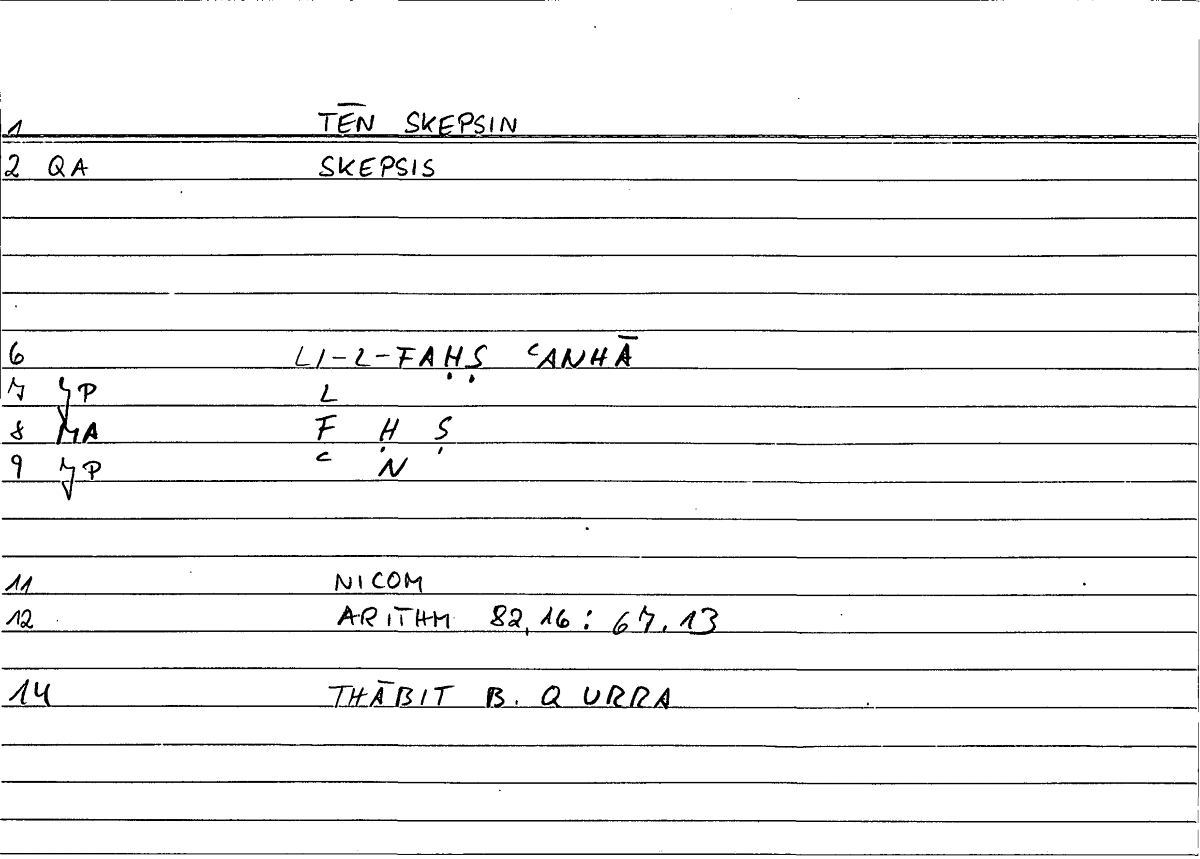 1 TĒN SKEPSIN
2 QA SKEPSIS
6 LI-L-FAḤṢ ʿANHĀ
7 L
8 MA F Ḥ Ṣ
9 ʿ N
11 NICOM
12 ARITHM 82,16 : 67.13
14 THĀBIT B. QURRA